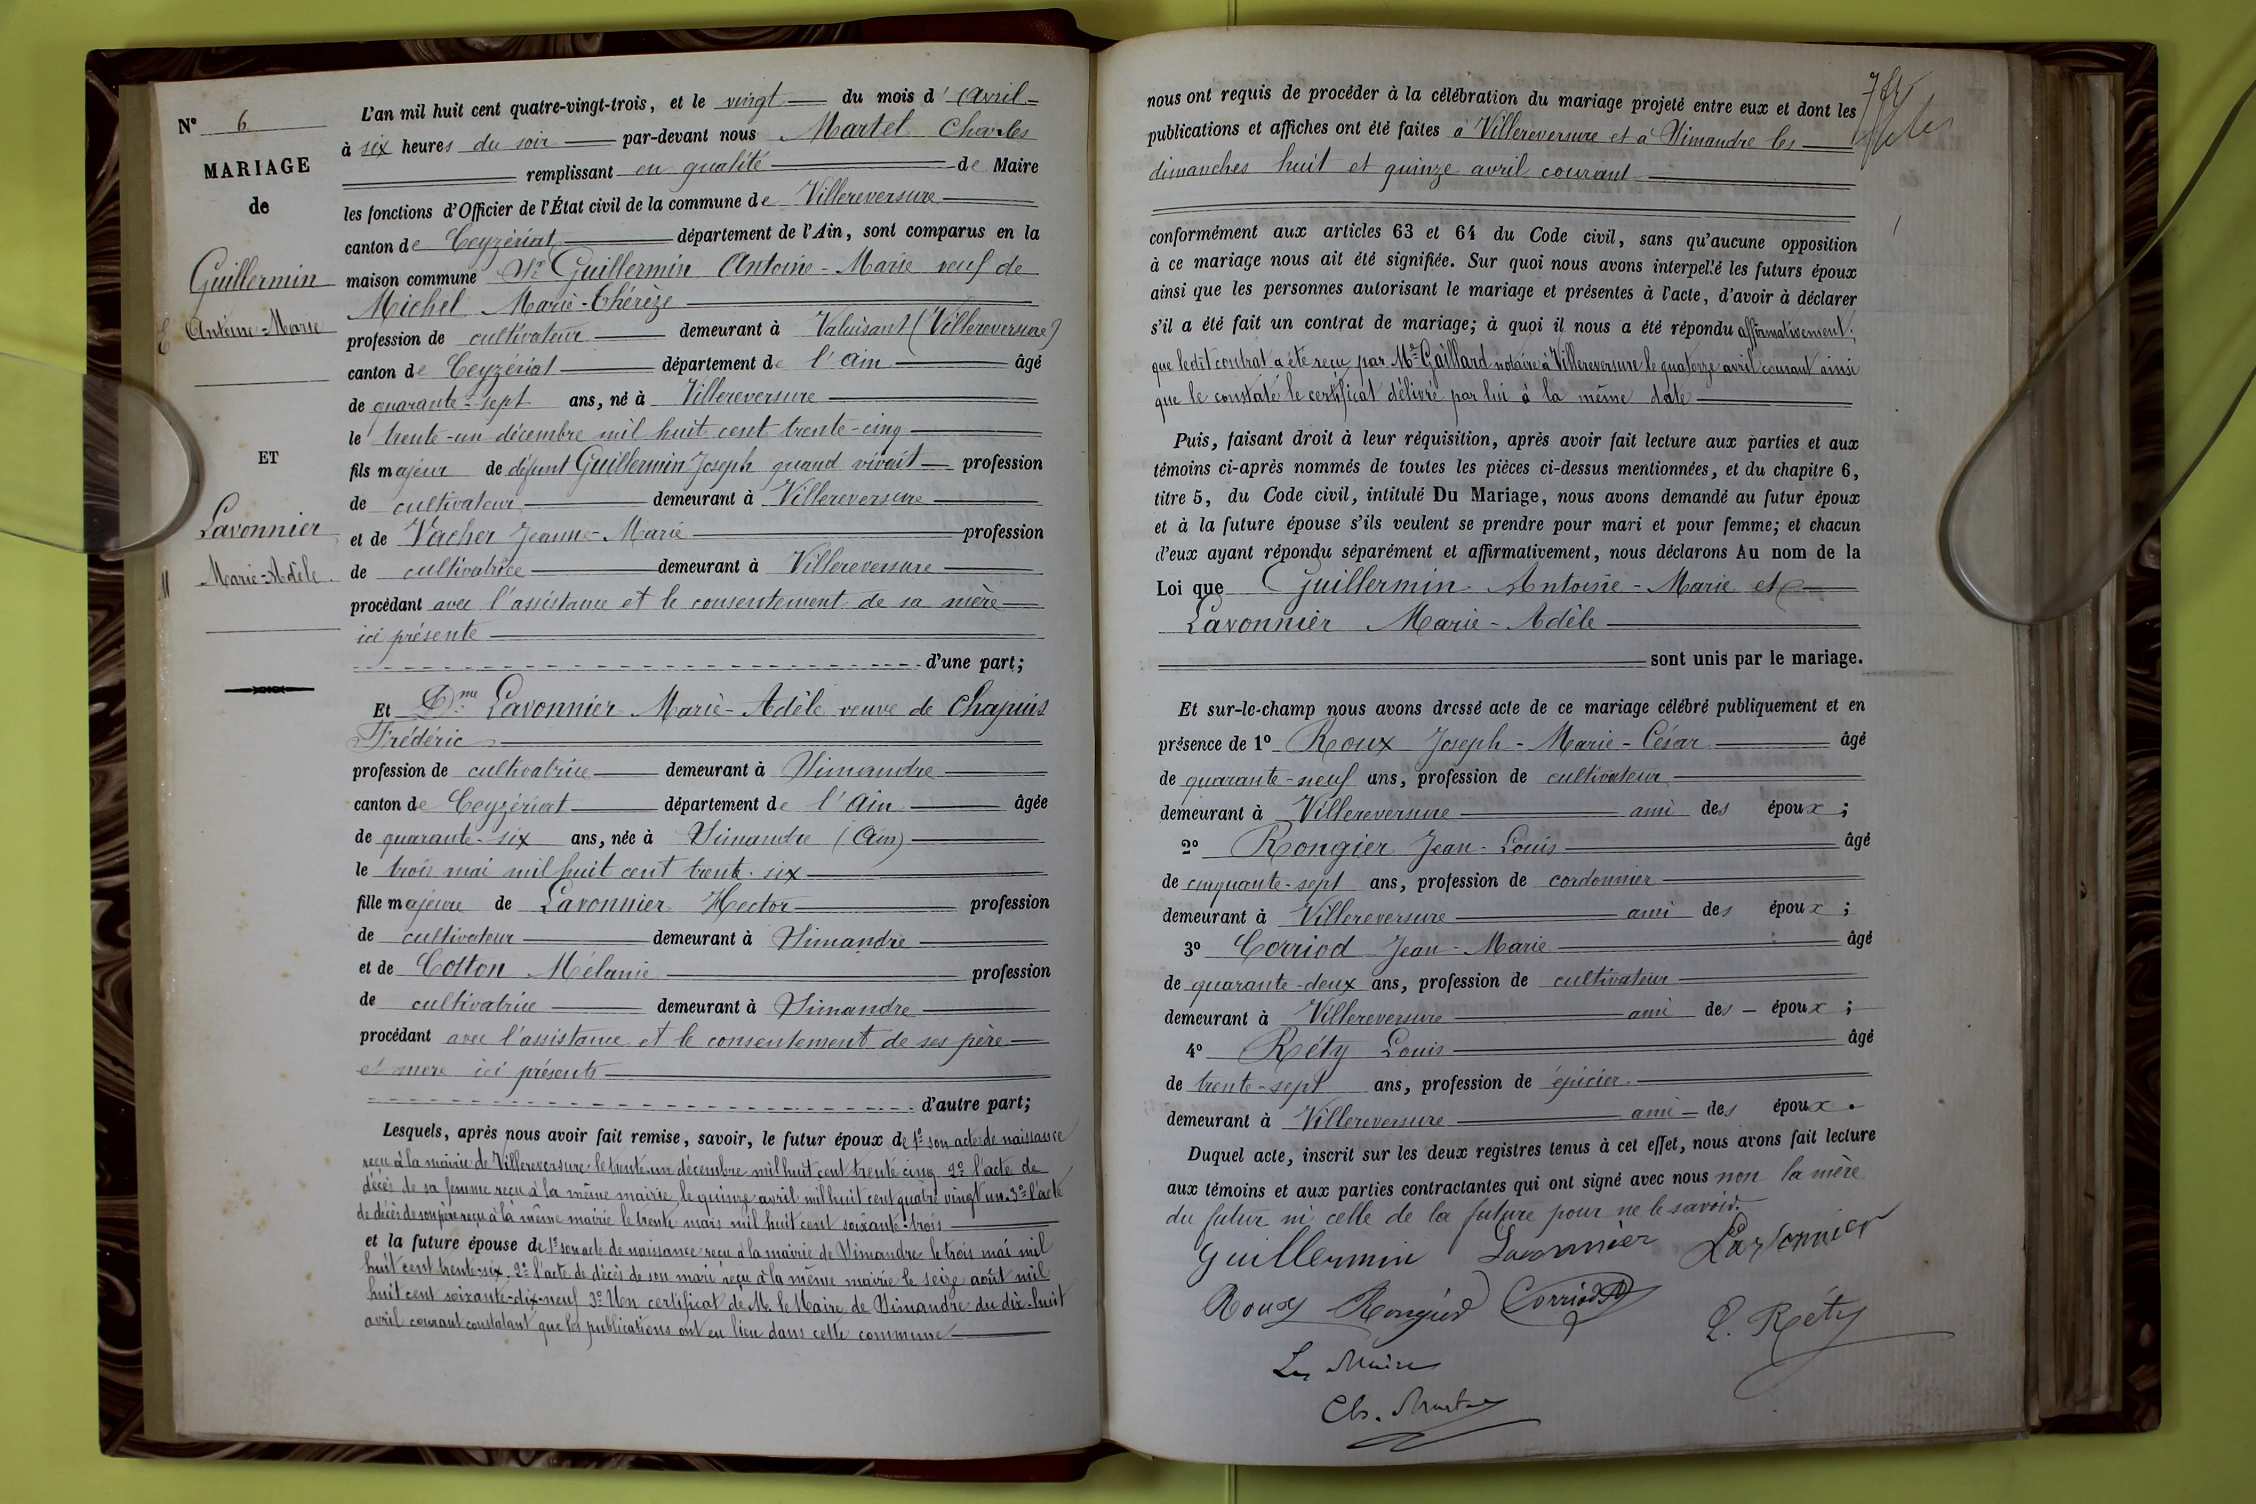 N° 6
MARIAGE
de
Guillermin
Antoine-Marie
ET
Lavonnier
Marie-Adèle
L'an mil huit cent quatre-vingt-trois, et le vingt du mois d'Avril
à six heures du soir par-devant nous Martel Charles
remplissant en qualité de Maire
les fonctions d'Officier de l'État civil de la commune de Villereversure
canton de Ceyzériat département de l'Ain, sont comparus en la
maison commune Sr Guillermin Antoine-Marie veuf de
Michel Marie-Thérèze
profession de cultivateur demeurant à Valuisant (Villereversure)
canton de Ceyzériat département de l'Ain âgé
de quarante-sept ans, né à Villereversure
le trente-un décembre mil huit cent trente-cinq
fils majeur de défunt Guillermin Joseph quand vivait profession
de cultivateur demeurant à Villereversure
et de Vacher Jeanne-Marie profession
de cultivatrice demeurant à Villereversure
procédant avec l'assistance et le consentement de sa mère
ici présente
d'une part;
Et Dme Lavonnier Marie-Adèle veuve de Chapuis
Frédéric
profession de cultivatrice demeurant à Simandre
canton de Ceyzériat département de l'Ain âgée
de quarante-six ans, née à Simandre (Ain)
le trois mai mil huit cent trente-six
fille majeure de Lavonnier Hector profession
de cultivateur demeurant à Simandre
et de Cotton Mélanie profession
de cultivatrice demeurant à Simandre
procédant avec l'assistance et le consentement de ses père
et mère ici présents
d'autre part;
Lesquels, après nous avoir fait remise, savoir, le futur époux de 1° son acte de naissance
reçu à la mairie de Villereversure le trente-un décembre mil huit cent trente cinq 2° l'acte de
décès de sa femme reçu à la même mairie le quinze avril mil huit cent quatre vingt un 3° l'acte
de décès de son père reçu à la même mairie le trente mars mil huit cent soixante-trois
et la future épouse de 1° son acte de naissance reçu à la mairie de Simandre le trois mai mil
huit cent trente-six. 2° l'acte de décès de son mari reçu à la même mairie le seize août mil
huit cent soixante-dix-neuf 3° Un certificat de M. le Maire de Simandre du dix-huit
avril courant constatant que les publications ont eu lieu dans cette commune
nous ont requis de procéder à la célébration du mariage projeté entre eux et dont les
publications et affiches ont été faites à Villereversure et à Simandre les
dimanches huit et quinze avril courant
conformément aux articles 63 et 64 du Code civil, sans qu'aucune opposition
à ce mariage nous ait été signifiée. Sur quoi nous avons interpellé les futurs époux
ainsi que les personnes autorisant le mariage et présentes à l'acte, d'avoir à déclarer
s'il a été fait un contrat de mariage; à quoi il nous a été répondu affirmativement;
que ledit contrat a été reçu par Me Gaillard notaire à Villereversure le quatorze avril courant ainsi
que le constate le certificat délivré par lui à la même date
Puis, faisant droit à leur réquisition, après avoir fait lecture aux parties et aux
témoins ci-après nommés de toutes les pièces ci-dessus mentionnées, et du chapitre 6,
titre 5, du Code civil, intitulé Du Mariage, nous avons demandé au futur époux
et à la future épouse s'ils veulent se prendre pour mari et pour femme; et chacun
d'eux ayant répondu séparément et affirmativement, nous déclarons Au nom de la
Loi que Guillermin Antoine-Marie et
Lavonnier Marie-Adèle
sont unis par le mariage.
Et sur-le-champ nous avons dressé acte de ce mariage célébré publiquement et en
présence de 1° Roux Joseph-Marie-César âgé
de quarante-neuf ans, profession de cultivateur
demeurant à Villereversure ami des époux;
2° Rongier Jean-Louis âgé
de cinquante-sept ans, profession de cordonnier
demeurant à Villereversure ami des époux;
3° Corriod Jean-Marie âgé
de quarante-deux ans, profession de cultivateur
demeurant à Villereversure ami des époux;
4° Réty Louis âgé
de trente-sept ans, profession de épicier
demeurant à Villereversure ami des époux.
Duquel acte, inscrit sur les deux registres tenus à cet effet, nous avons fait lecture
aux témoins et aux parties contractantes qui ont signé avec nous non la mère
du futur ni celle de la future pour ne le savoir.
Guillermin Lavonnier Lavonnier
Roux Rongier Corriod L. Réty
Le Maire
Ch. Martel